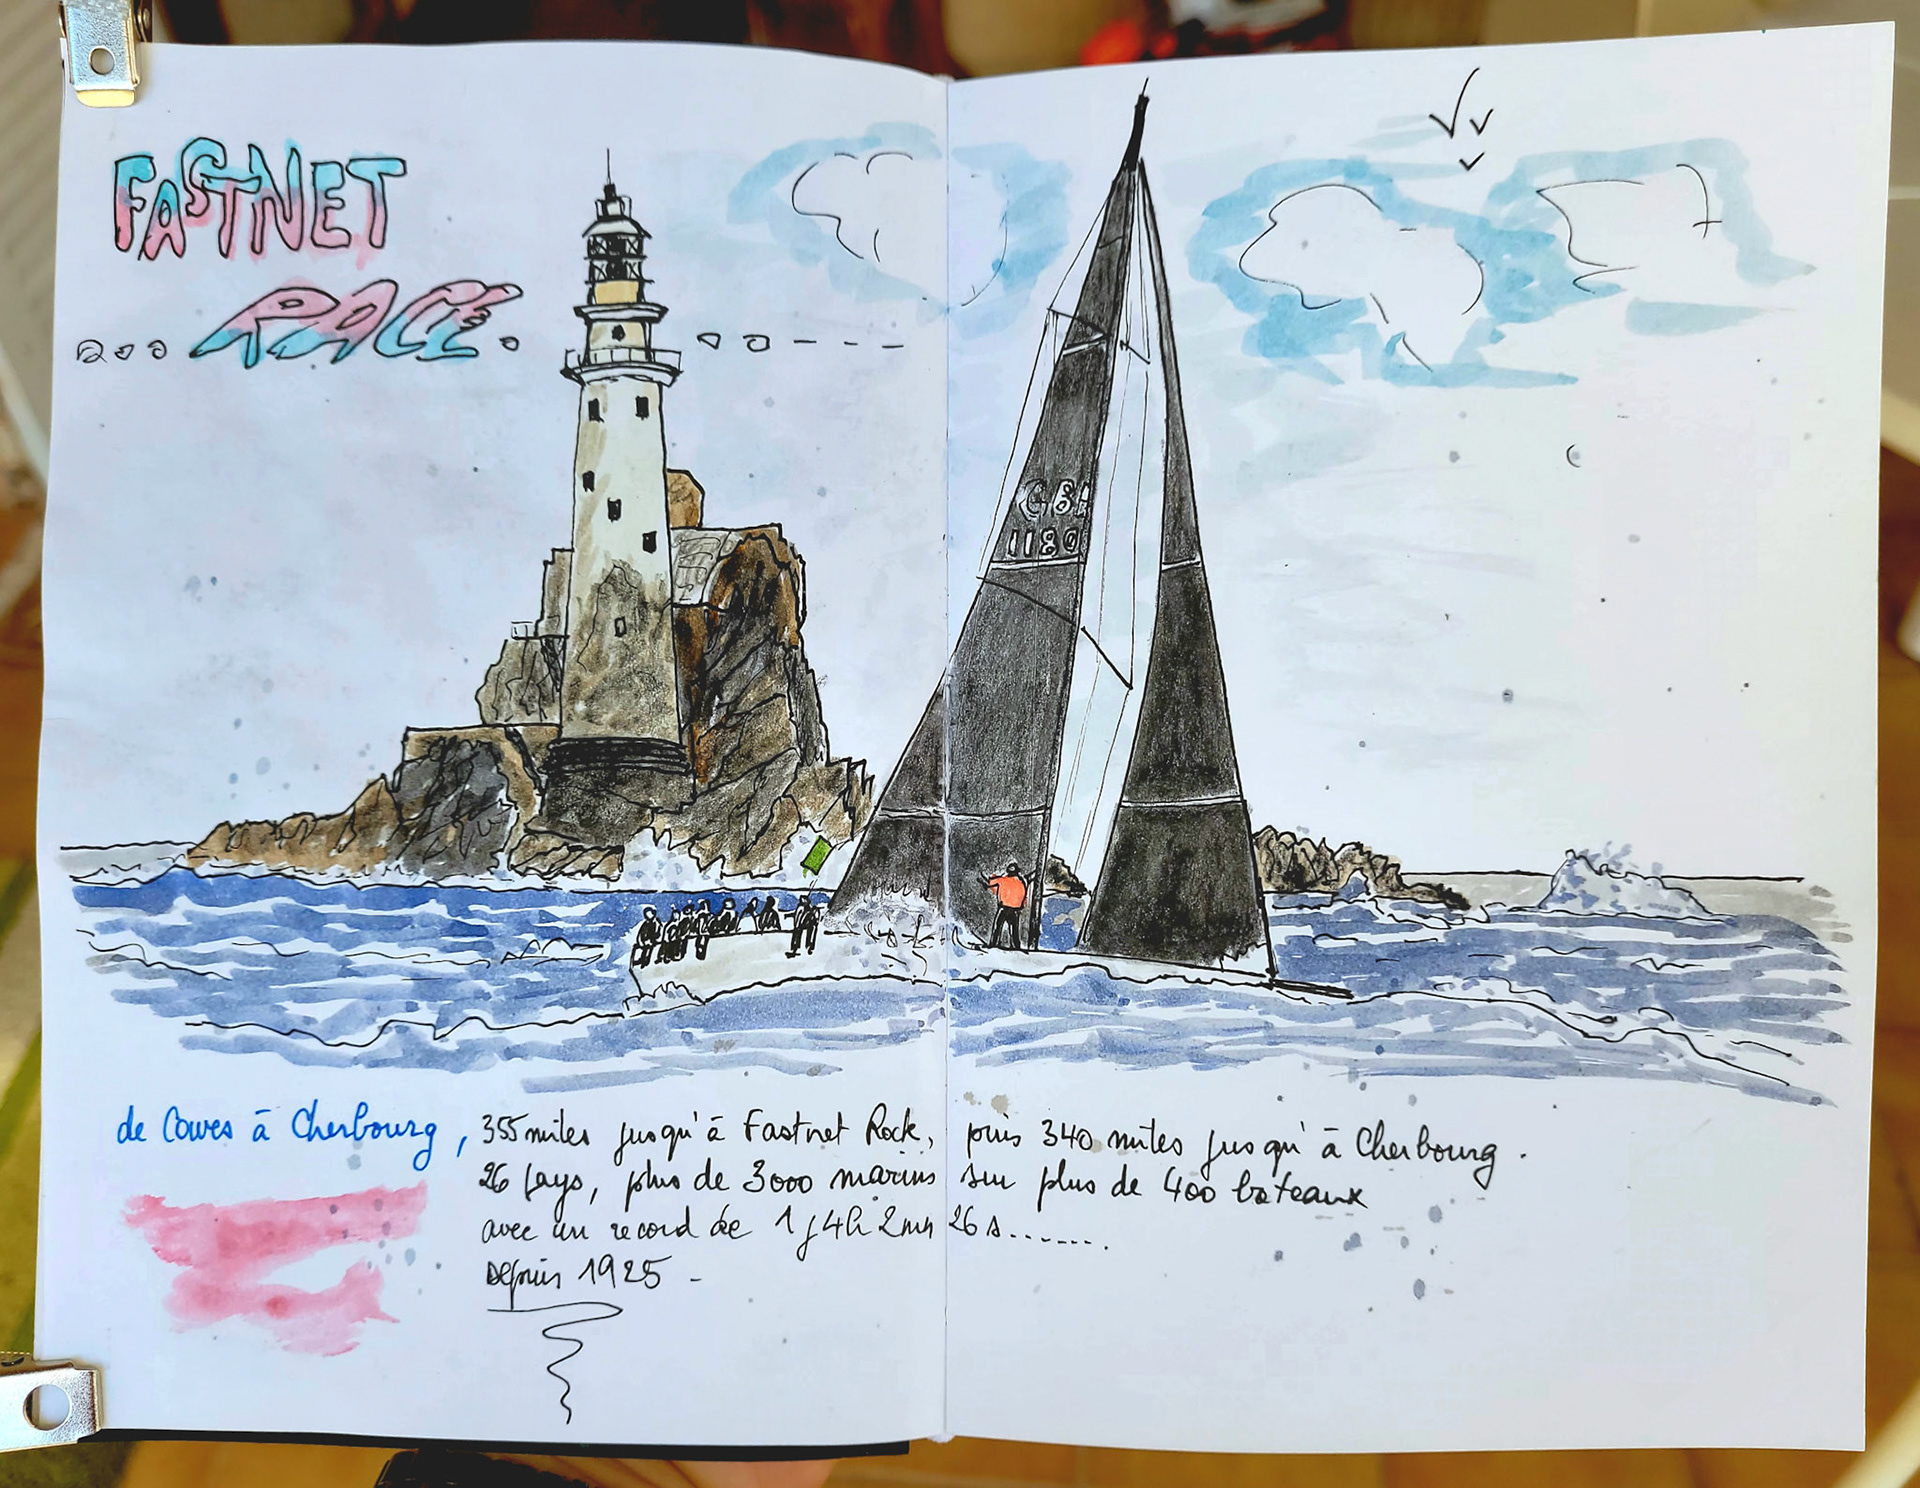 FASTNET
RACE
GBR
1180
de Cowes à Cherbourg, 355 miles jusqu'à Fastnet Rock, puis 340 miles jusqu'à Cherbourg.
26 pays, plus de 3000 marins sur plus de 400 bateaux
avec un record de 1j 4h 2mn 26s.......
Depuis 1925 -